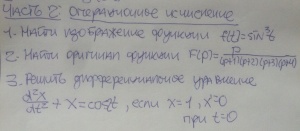 Часть 2. Операционное исчисление
1. Найти изображение функции f(t)=sin²t
2. Найти оригинал функции F(p)= p/((p+1)(p+2)(p+3)(p+4))
3. Решить дифференциальное уравнение
d²x/dt² + x = cos2t, если x=1, x'=0
при t=0